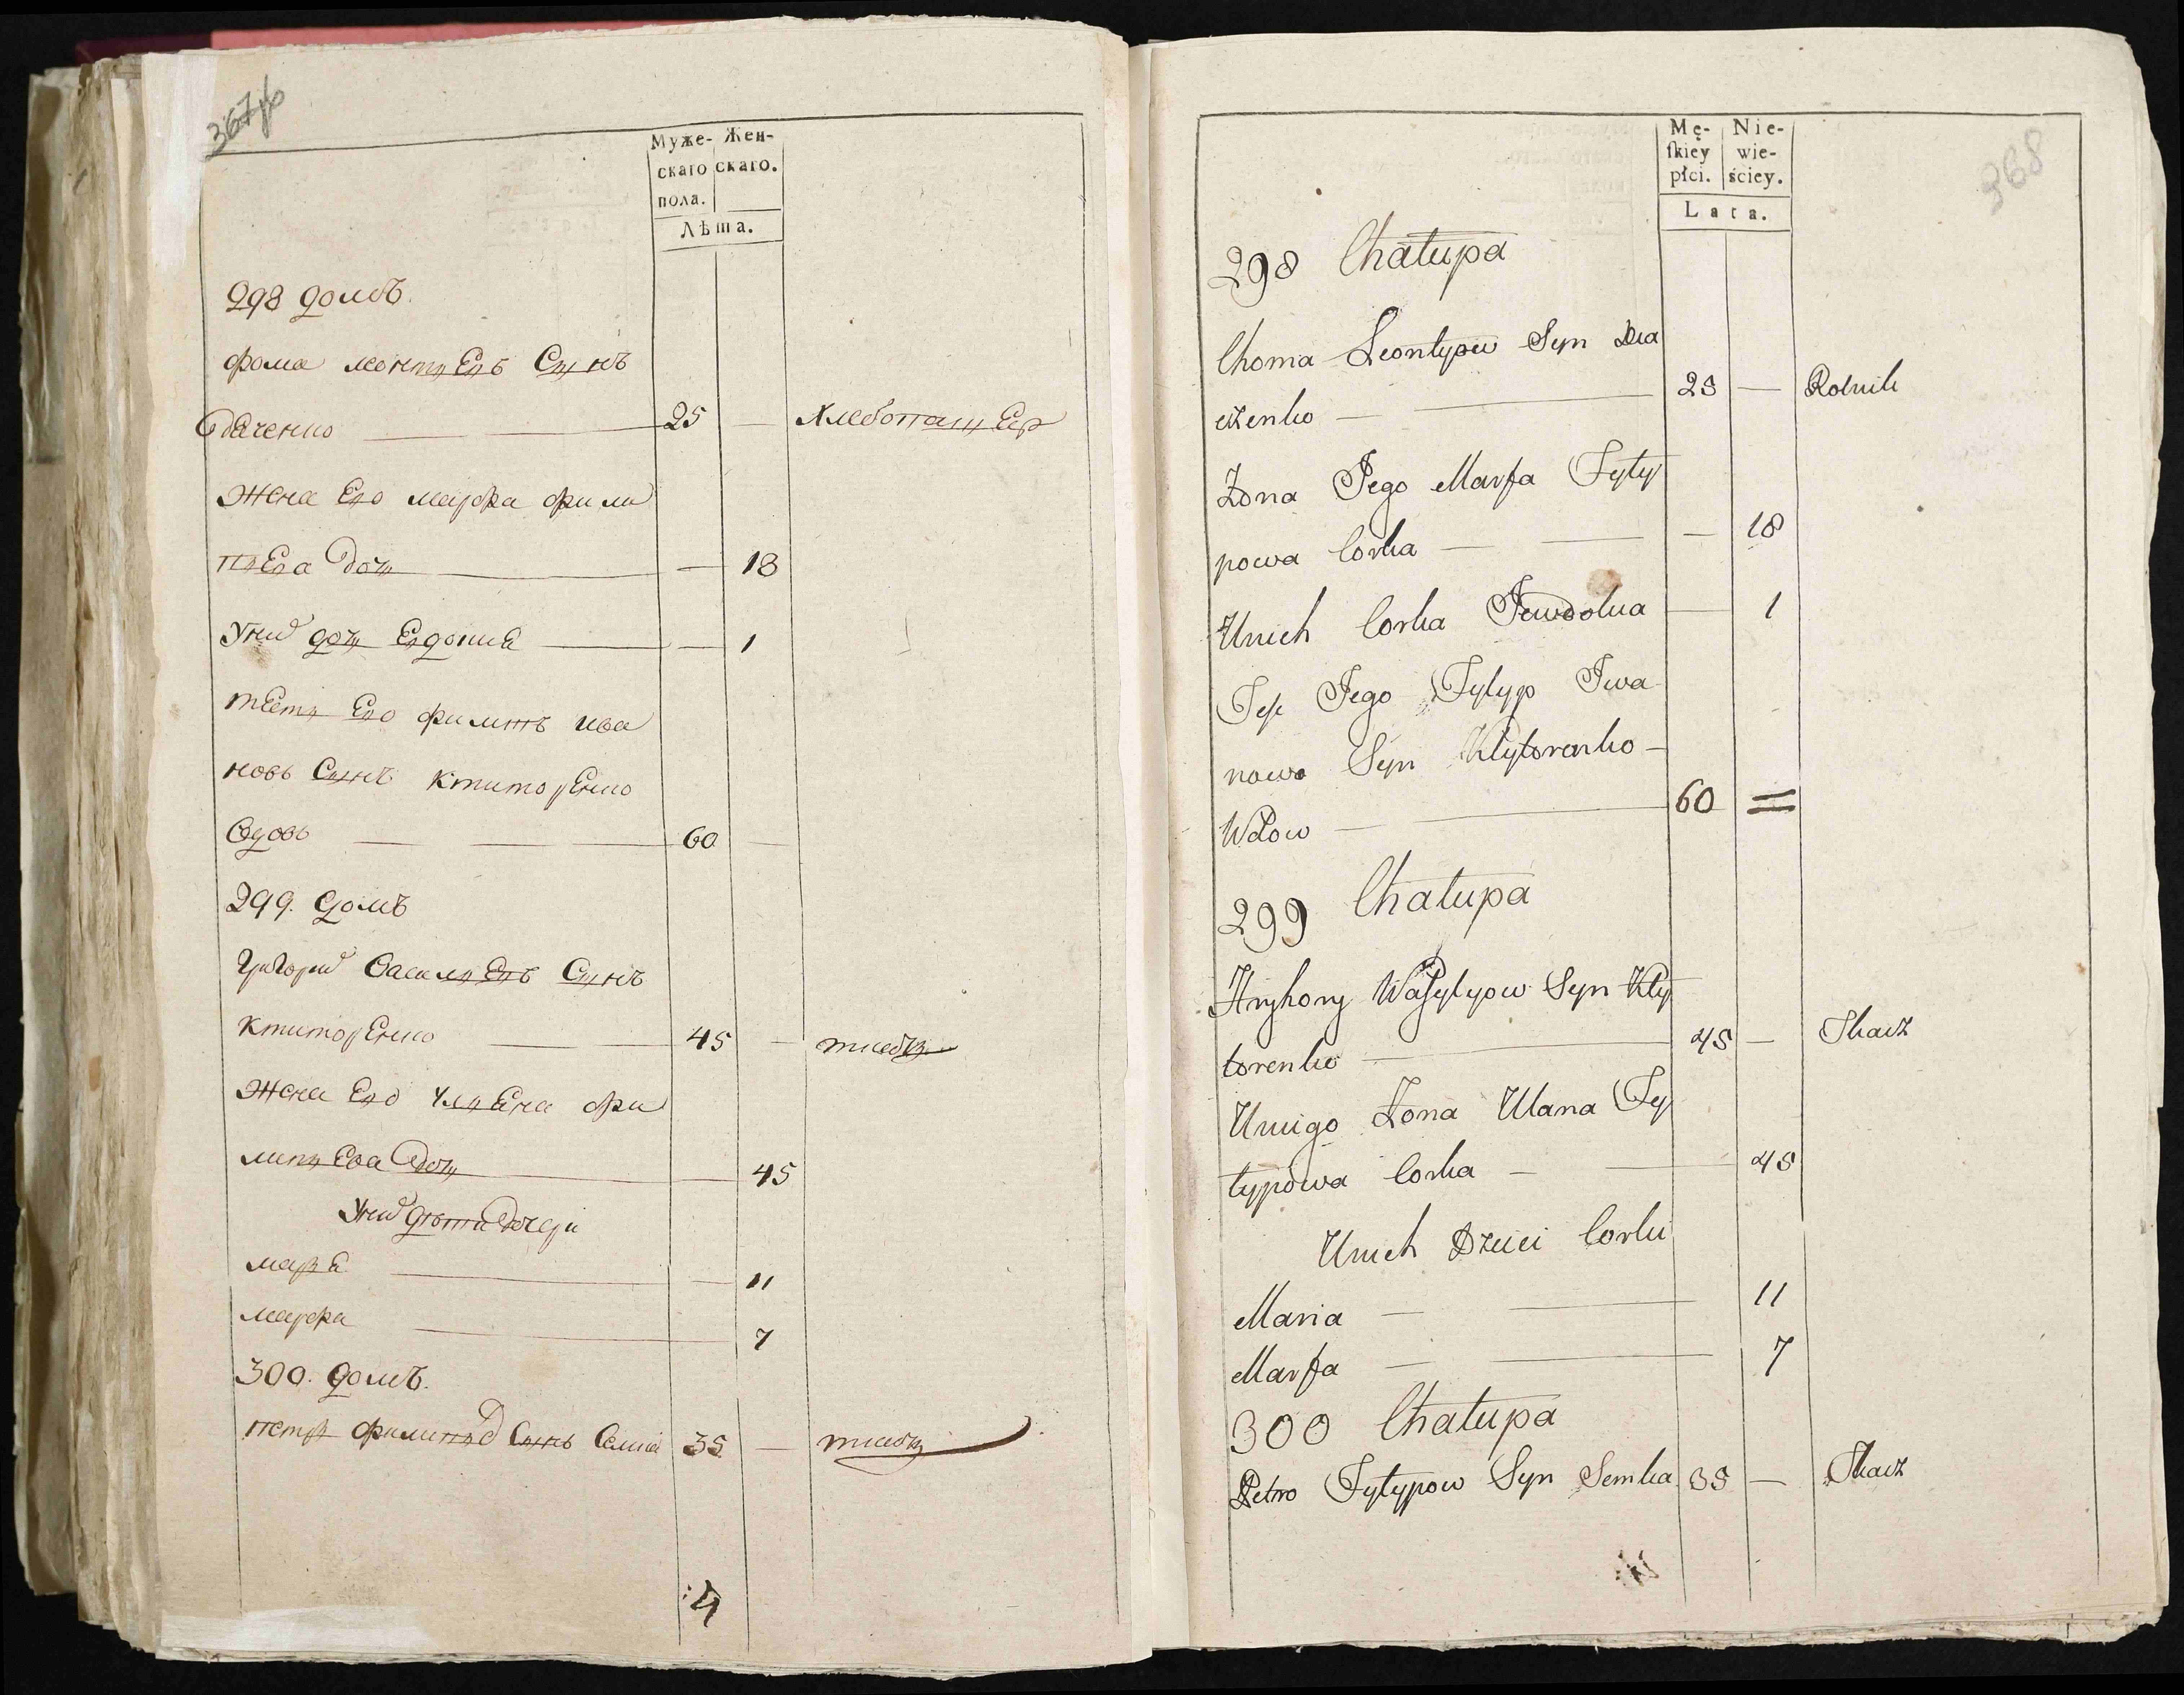 367об
Муже- Жен-
скаго скаго.
пола.
Лѣта.
298 домъ.
Фома леонтиевъ Сынъ
25
Жена Его марфа фили
пиева дочъ 18
Униѣ дочъ Евдокиѣ 1
тесть Его филипъ ива
новъ Сынъ ктиторенко
вдовъ 60
299. домъ
Григорий василиевъ Сынъ
ктиторенко 45 ткачъ
Жена Его улиена фи
липиева дочъ 45
дѣти дочери
мариѣ 11
марфа 7
300. домъ.
петръ филипиевъ Сынъ 35 ткачъ
4
368
Mę- Nie-
skiey wie-
płci. ściey.
Lata.
298 Chałupa
Choma Leontyow Syn Dia
czenko 25 — Rolnik
Żona Jego Marfa Fyly
powa Corka — 18
Unich Corka Jewdokia 1
Teść Jego Fylyp Iwa
nowo Syn Ktytorenko
Wdow 60
299 Chałupa
Hryhory Wasylyow Syn Kty
torenko 45 — Tkacz
Uniego Żona Ulana Fy
lypowa Corka — 45
Unich Dzieci Corki
Maria — 11
Marfa — 7
300 Chałupa
Petro Fylypow Syn Semka 35 — Tkacz